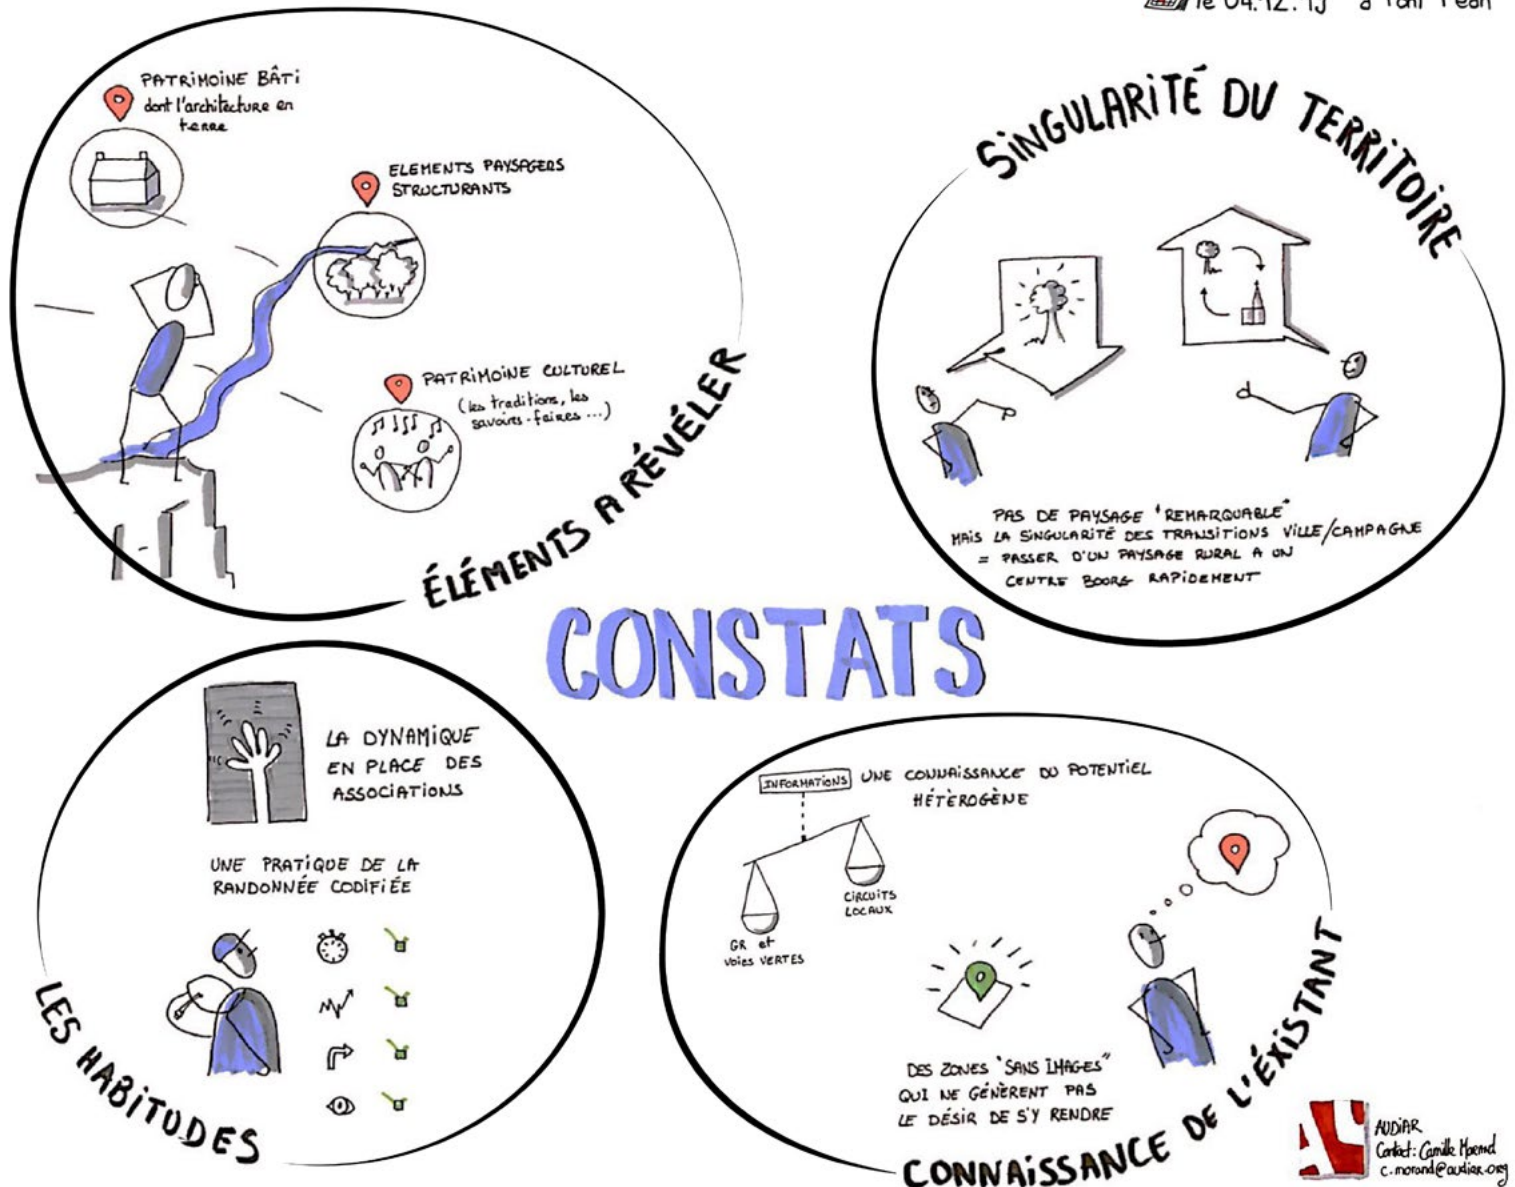 le 04.12.15 à Pont Péan
PATRIMOINE BÂTI
dont l'architecture en
terre
ELEMENTS PAYSAGERS
STRUCTURANTS
PATRIMOINE CULTUREL
(les traditions, les
savoirs-faires...)
ÉLÉMENTS A RÉVÉLER
SINGULARITÉ DU TERRITOIRE
PAS DE PAYSAGE "REMARQUABLE"
MAIS LA SINGULARITÉ DES TRANSITIONS VILLE/CAMPAGNE
= PASSER D'UN PAYSAGE RURAL A UN
CENTRE BOURG RAPIDEMENT
CONSTATS
LA DYNAMIQUE
EN PLACE DES
ASSOCIATIONS
UNE PRATIQUE DE LA
RANDONNÉE CODIFIÉE
LES HABITUDES
INFORMATIONS
UNE CONNAISSANCE DU POTENTIEL
HÉTÈROGÈNE
CIRCUITS
LOCAUX
GR et
Voies VERTES
DES ZONES "SANS IMAGES"
QUI NE GÉNÈRENT PAS
LE DÉSIR DE S'Y RENDRE
CONNAISSANCE DE L'ÉXISTANT
AUDIAR
Contact: Camille Morand
c.morand@audiar.org